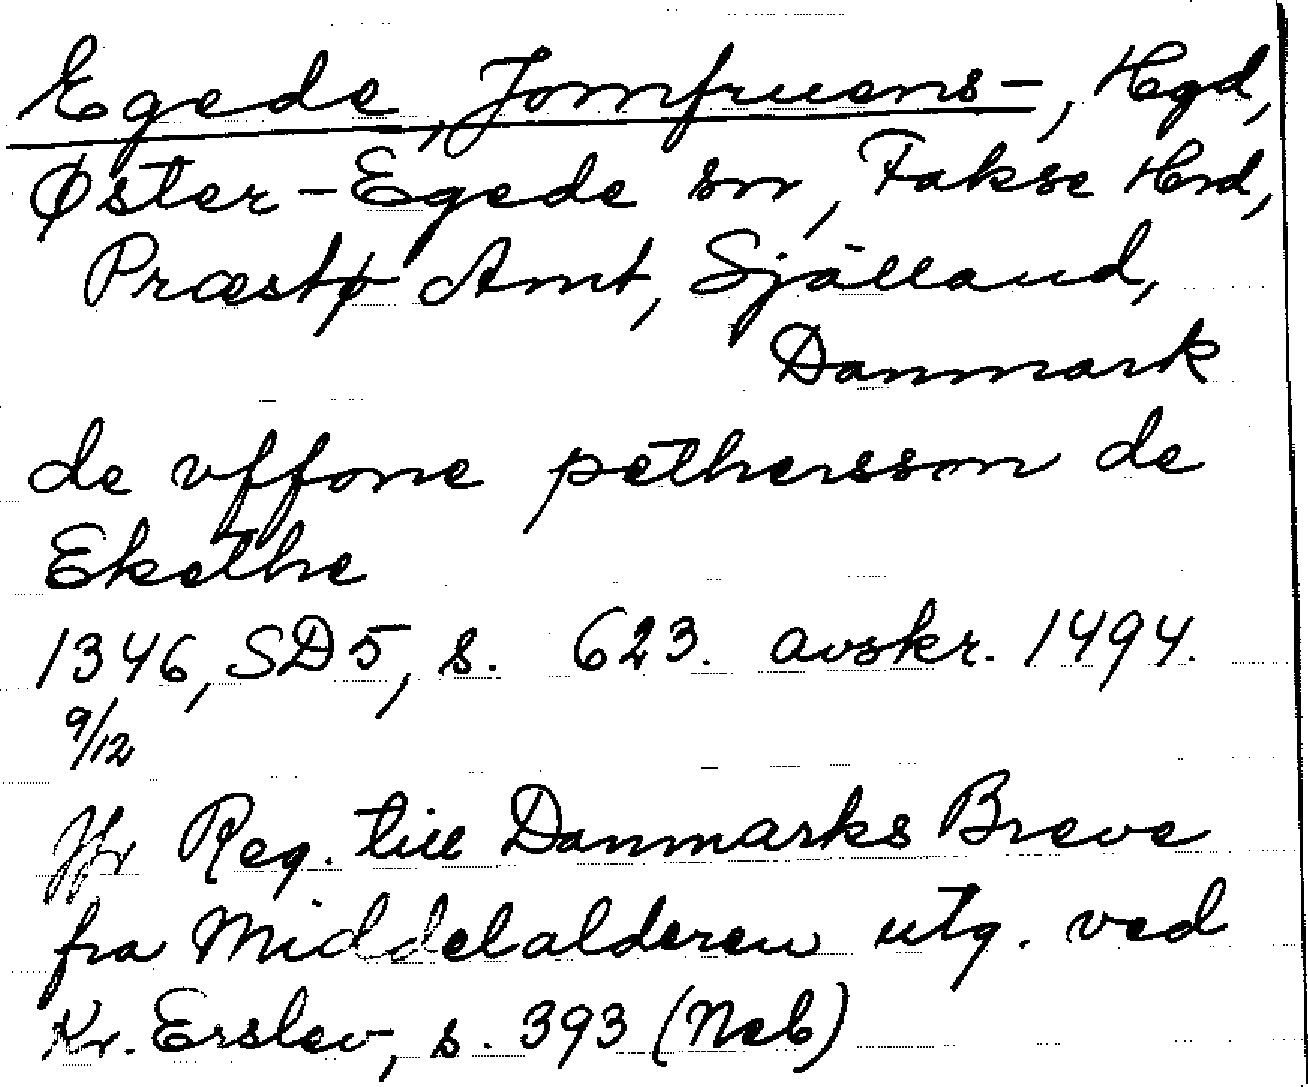 Egede, Jomfruens-, Hgd,
Øster-Egede sn, Fakse Hrd,
Præstø Amt, Själland,
Danmark
de vffone pethersson de
Ekethe
1346, SD5, s. 623. avskr. 1494.
9/12
Jfr Reg. till Danmarks Breve
fra Middelalderen utg. ved
Kr. Erslev, s. 393 (Neb)